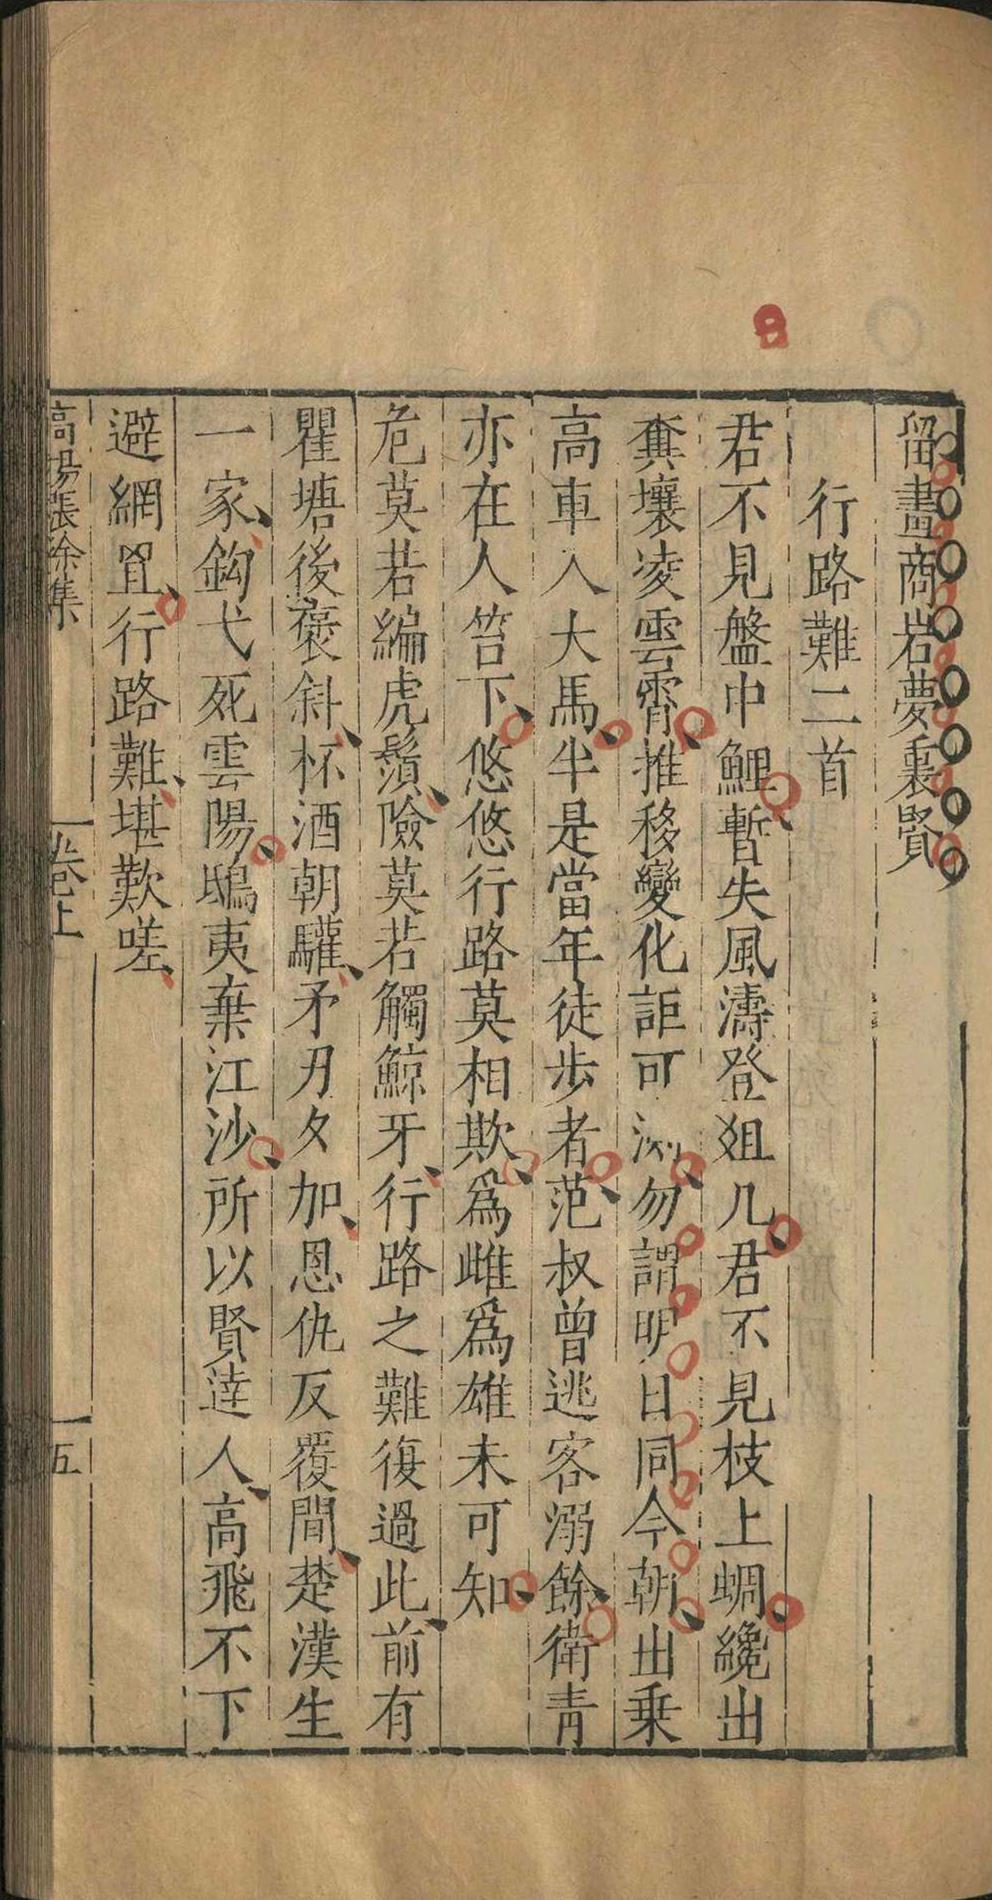 留畫商岩夢裏賢
行路難二首
君不見盤中鯉暫失風濤登爼几君不見枝上蜩纔出
糞壤凌雲霄推移變化詎可測勿謂明日同今朝出乗
高車入大馬半是當年徒步者范叔曾逃客溺餘衛青
亦在人笞下悠悠行路莫相欺爲雌爲雄未可知
危莫若編虎鬚險莫若觸鯨牙行路之難復過此前有
瞿塘後褒斜杯酒朝驩矛刃夕加恩仇反覆間楚漢生
一家鈎弋死雲陽鴟夷棄江沙所以賢達人高飛不下
避網罝行路難堪歎嗟
高陽張徐集
卷上
五